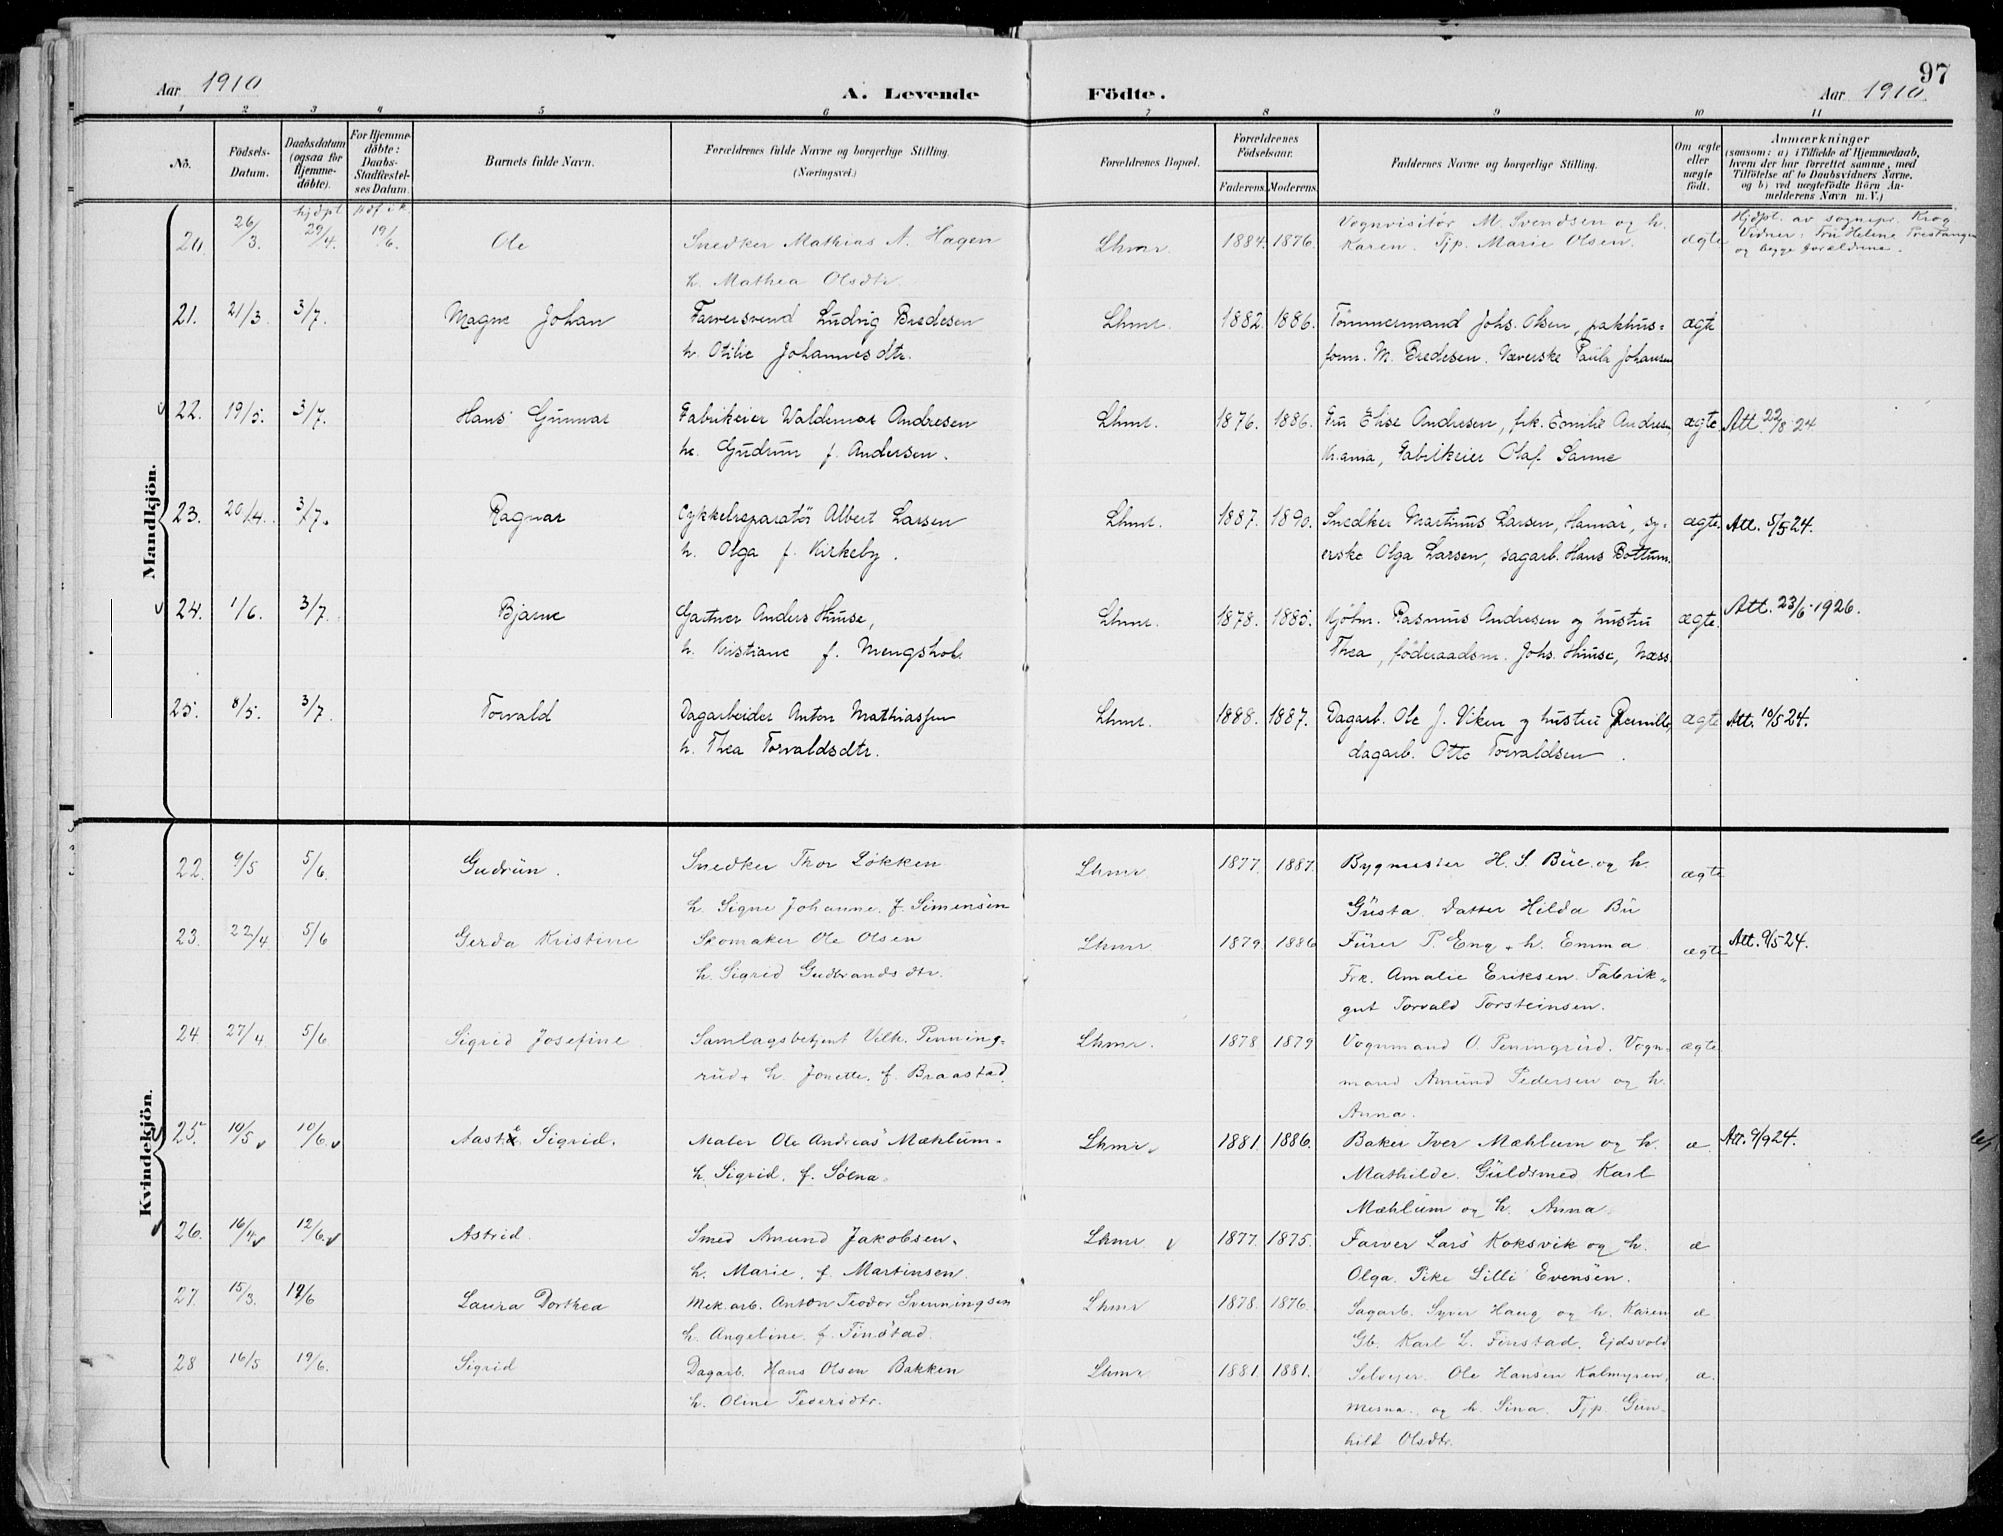 97
Aar 1910 A. Levende Födte. Aar 1910.
1 2 3 4 5 6 7 8 9 10 11
No.
Födsels-Datum.
Daabsdatum (ogsaa for Hjemme-döbte).
For Hjemme-döbte: Daabs-Stadfæstel-ses Datum.
Barnets fulde Navn.
Forældrenes fulde Navne og borgerlige Stilling.
(Næringsvei.)
Forældrenes Bopæl.
Forældrenes Födselsaar.
Faderens. Moderens.
Faddernes Navne og borgerlige Stilling.
Om ægte eller uægte födt.
Anmærkninger
(saasom: a) i Tilfælde af Hjemmedaab,
hvem der har forrettet samme, med
Tilföielse af to Daabsvidners Navne.
og b) ved uægtefödte Börn An-
melderens Navn m. V.)
Mandkjön.
hjdpt
20. 26/3. 29/4. 19/6. Ole Snedker Mathias A. Hagen Lhmr. 1884. 1876. Vognvisitør M. Svendsen og h. ægte Hjdpt. av sognepr. Krog
h. Mathea Olsdtr. Karen. Tjp. Marie Olsen. Vidner: Fru Helene Prestangen
og begge forældrene.
21. 21/3. 3/7. Magne Johan Farversvend Ludvig Bredesen Lhmr. 1882. 1886. Tömmermand Johs. Olsen, pakhus= ægte
h. Otilie Johannesdtr. form. M. Bredesen. Væverske Paula Johansen
22. 19/5. 3/7. Hans Gunnar Fabrikeier Waldemar Andresen Lhmr. 1876. 1886. Fru Elise Andresen, frk. Emilie Andresen, ægte. Att. 22/8 24
h. Gudrun f. Andersen. Kr.ania, Fabrikeier Olaf Sanne
23. 20/4. 3/7. Ragnar Cykkelreparatör Albert Larsen Lhmr. 1887. 1890. Snedker Martinus Larsen, Hamar, sy- ægte. Att. 5/5 24.
h. Olga f. Kirkeby. erske Olga Larsen, sagarb. Hans Bottum.
24. 1/6. 3/7. Bjarne Gartner Anders Huuse, Lhmr. 1878. 1885. Kjöbm. Rasmus Andresen og hustru ægte. Att. 23/6 1926.
h. Kristiane f. Mengshol. Thea, föderaadsm. Johs. Huuse, Næss.
25. 8/5. 3/7. Torvald Dagarbeider Anton Mathiassen Lhmr. 1888. 1887. Dagarb. Ole J. Viken og hustru Pernille, ægte Att. 10/5 24.
h. Thea Torvaldsdtr. dagarb. Otto Torvaldsen.
Kvindekjön.
22. 9/5 5/6. Gudrun. Snedker Thor Løkken Lhmr. 1877. 1887. Bygmester H. S. Bue. og h. ægte
h. Signe Johanne. f. Simensen Gusta. Datter Hilda Bu
23. 22/4 5/6 Gerda Kristine Skomaker Ole Olsen Lhmr. 1879. 1886 Furer P. Eng + h. Emma ægte Att. 9/5 24.
h. Sigrid Gudbrandsdtr. Frk. Amalie Eriksen. Fabrik-
gut Torvald Torsteinsen.
24 27/4 5/6 Sigrid Josefine Samlagsbetjent Vilh. Penning- Lhmr. 1878 1879 Vognmand O. Penningrud. Vogn- ægte
rud + h. Jonette. f. Braastad. mand Amund Pedersen og h.
Anna.
25. 10/5 10/6. Aasta Sigrid. Maler Ole Andreas Mæhlum. Lhmr. 1881. 1886. Baker Iver Mæhlum og h. æ. Att. 9/9 24.
h. Sigrid. f. Solna. Mathilde. Guldsmed Karl
Mæhlum og h. Anna.
26. 16/4 12/6. Astrid. Smed Amund Jakobsen. Lhmr 1877. 1875. Farver Lars Koksvik og h. æ
h. Marie. f. Martinsen. Olga. Pike Lilli Evensen.
27. 15/3. 19/6 Laura Dorthea Mek. arb. Anton Teodor Svenningsen Lhmr 1878. 1876. Sagarb. Syver Haug og h. Karen æ
h. Angeline. f. Finstad. Gb. Karl L. Finstad. Ejdsvold
28 16/5 19/6. Sigrid Dagarb. Hans Olsen Bakken Lhmr 1881. 1881. Selvejer. Ole Hansen Kalmyren, æ.
h. Oline Pedersdtr. Mesna. og h. Sina. Tjp. Gun-
hild Olsdtr.